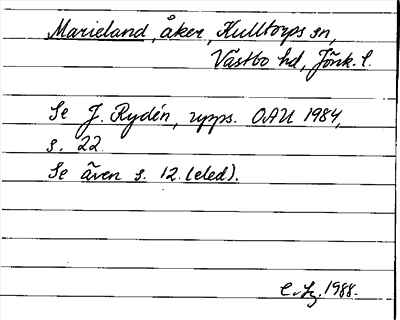 Marieland, åker, Kulltorps sn,
Västbo hd, Jönk. l.
Se J. Rydén, upps. OAU 1984,
s. 22.
Se även s. 12. (eled).
1988.